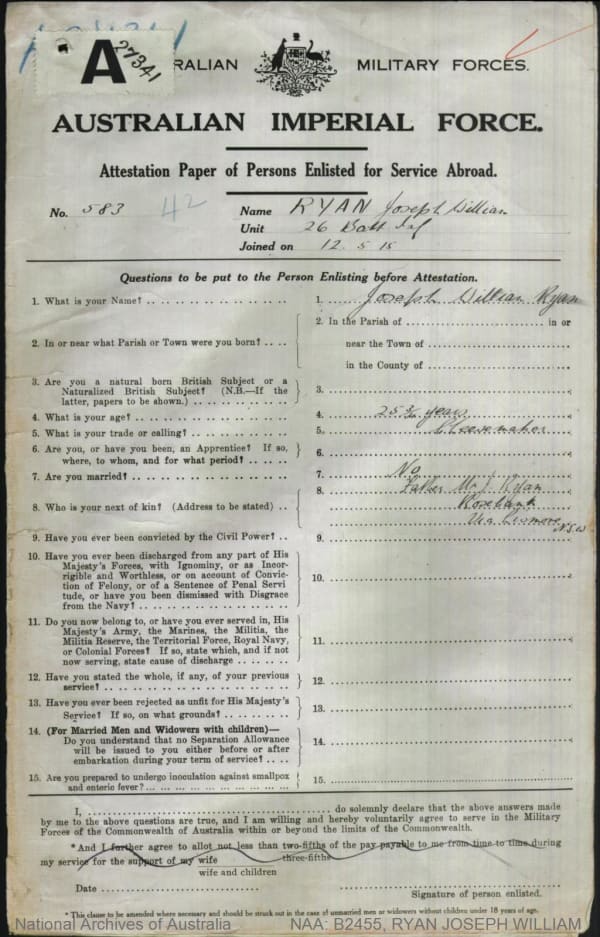 A 27341
RALIAN MILITARY FORCES.
AUSTRALIAN IMPERIAL FORCE.
Attestation Paper of Persons Enlisted for Service Abroad.
No. 583 42 Name RYAN Joseph William
Unit 26 Batt Inf
Joined on 12.5.15
Questions to be put to the Person Enlisting before Attestation.
1. What is your Name? 1. Joseph William Ryan
2. In or near what Parish or Town were you born? 2. In the Parish of in or
near the Town of
in the County of
3. Are you a natural born British Subject or a
Naturalized British Subject? (N.B.—If the
latter, papers to be shown.) 3.
4. What is your age? 4. 25 years
5. What is your trade or calling? 5. Cheesemaker
6. Are you, or have you been, an Apprentice? If so,
where, to whom, and for what period? 6.
7. Are you married? 7. No
8. Who is your next of kin? (Address to be stated) 8. Father Mr J. Ryan
Rosebank
Via Lismore N.S.W
9. Have you ever been convicted by the Civil Power? 9.
10. Have you ever been discharged from any part of His
Majesty's Forces, with Ignominy, or as Incor-
rigible and Worthless, or on account of Convic-
tion of Felony, or of a Sentence of Penal Servi
tude, or have you been dismissed with Disgrace
from the Navy? 10.
11. Do you now belong to, or have you ever served in, His
Majesty's Army, the Marines, the Militia, the
Militia Reserve, the Territorial Force, Royal Navy,
or Colonial Forces? If so, state which, and if not
now serving, state cause of discharge 11.
12. Have you stated the whole, if any, of your previous
service? 12.
13. Have you ever been rejected as unfit for His Majesty's
Service? If so, on what grounds? 13.
14. (For Married Men and Widowers with children)—
Do you understand that no Separation Allowance
will be issued to you either before or after
embarkation during your term of service? 14.
15. Are you prepared to undergo inoculation against smallpox
and enteric fever? 15.
I, do solemnly declare that the above answers made
by me to the above questions are true, and I am willing and hereby voluntarily agree to serve in the Military
Forces of the Commonwealth of Australia within or beyond the limits of the Commonwealth.
*And I further agree to allot not less than two-fifths of the pay payable to me from time to time during
three-fifths
my service for the support of my wife
wife and children
Date
Signature of person enlisted.
* This clause to be amended where necessary and should be struck out in the case of unmarried men or widowers without children under 18 years of age.
National Archives of Australia NAA: B2455, RYAN JOSEPH WILLIAM